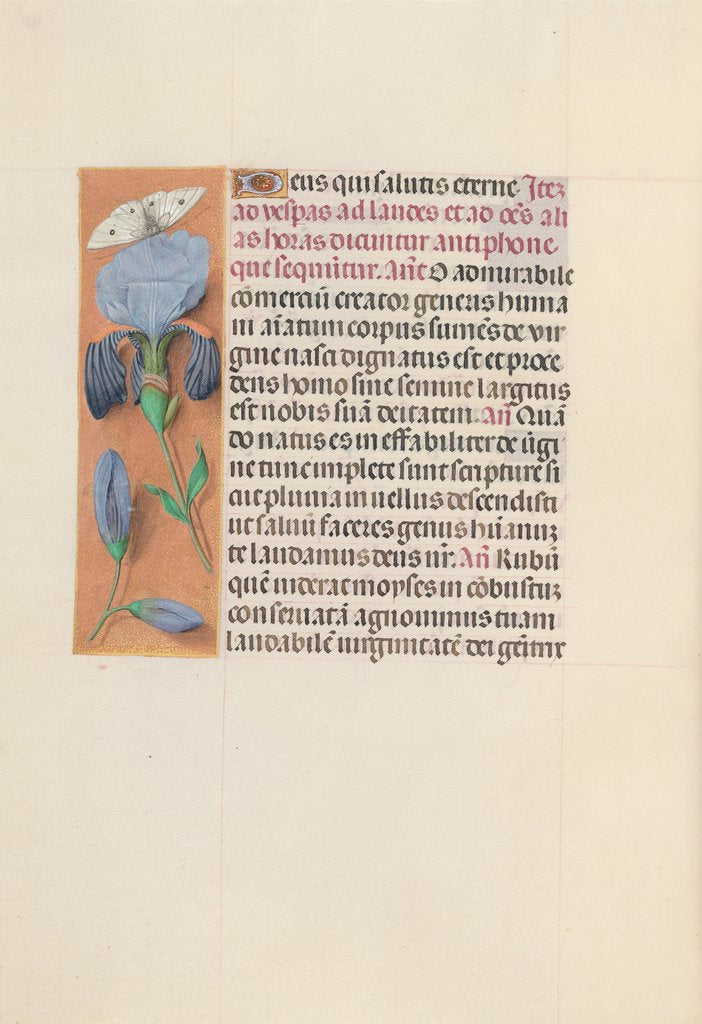 Deus qui salutis eterne. Itez
ad vespas ad laudes et ad oēs ali
as horas dicuntur antiphone
que sequūtur. Añe O admirabile
cōmerciū creator generis huma
ni aīatum corpus sumēs de vir
gine nasci dignatus est et proce
dens homo sine semine largitus
est nobis suā deitatem. Añ Quā
do natus es in effabiliter de v̄gi
ne tunc implete sunt scripture si
cut pluvia in vellus descendisti
ut salvū faceres genus hūanuz
te laudamus deus nr̄. Añ Rubū
quē viderat moyses in cōbustuz
conservatā agnovimus tuam
laudabilē virginitatē dei geītrix